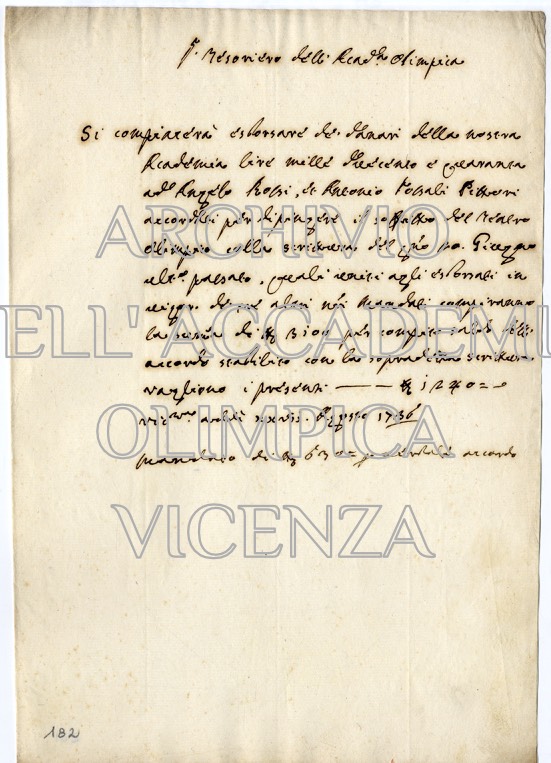 Tesoriero dell Acad.a Olimpica
Si compiacerà esborsare de danari della nostra
Academia lire mille duecento e quaranta
ad Angelo Rossi, et Antonio Pittori
accordati per dipingere il soffitto del Teatro
Olimpico colla scrittura del 20. Giugno
ult.o passato, quali uniti agli esborsati in
vigor de altri Mandati compiranno
la di 3100 per compito saldo dell
accordo stabilito con la sopradetta scrittura
vagliono i presenti —— 1240 =
1736
mandato di accordo
ARCHIVIO
ELL'ACCADEMI
OLIMPICA
VICENZA
182